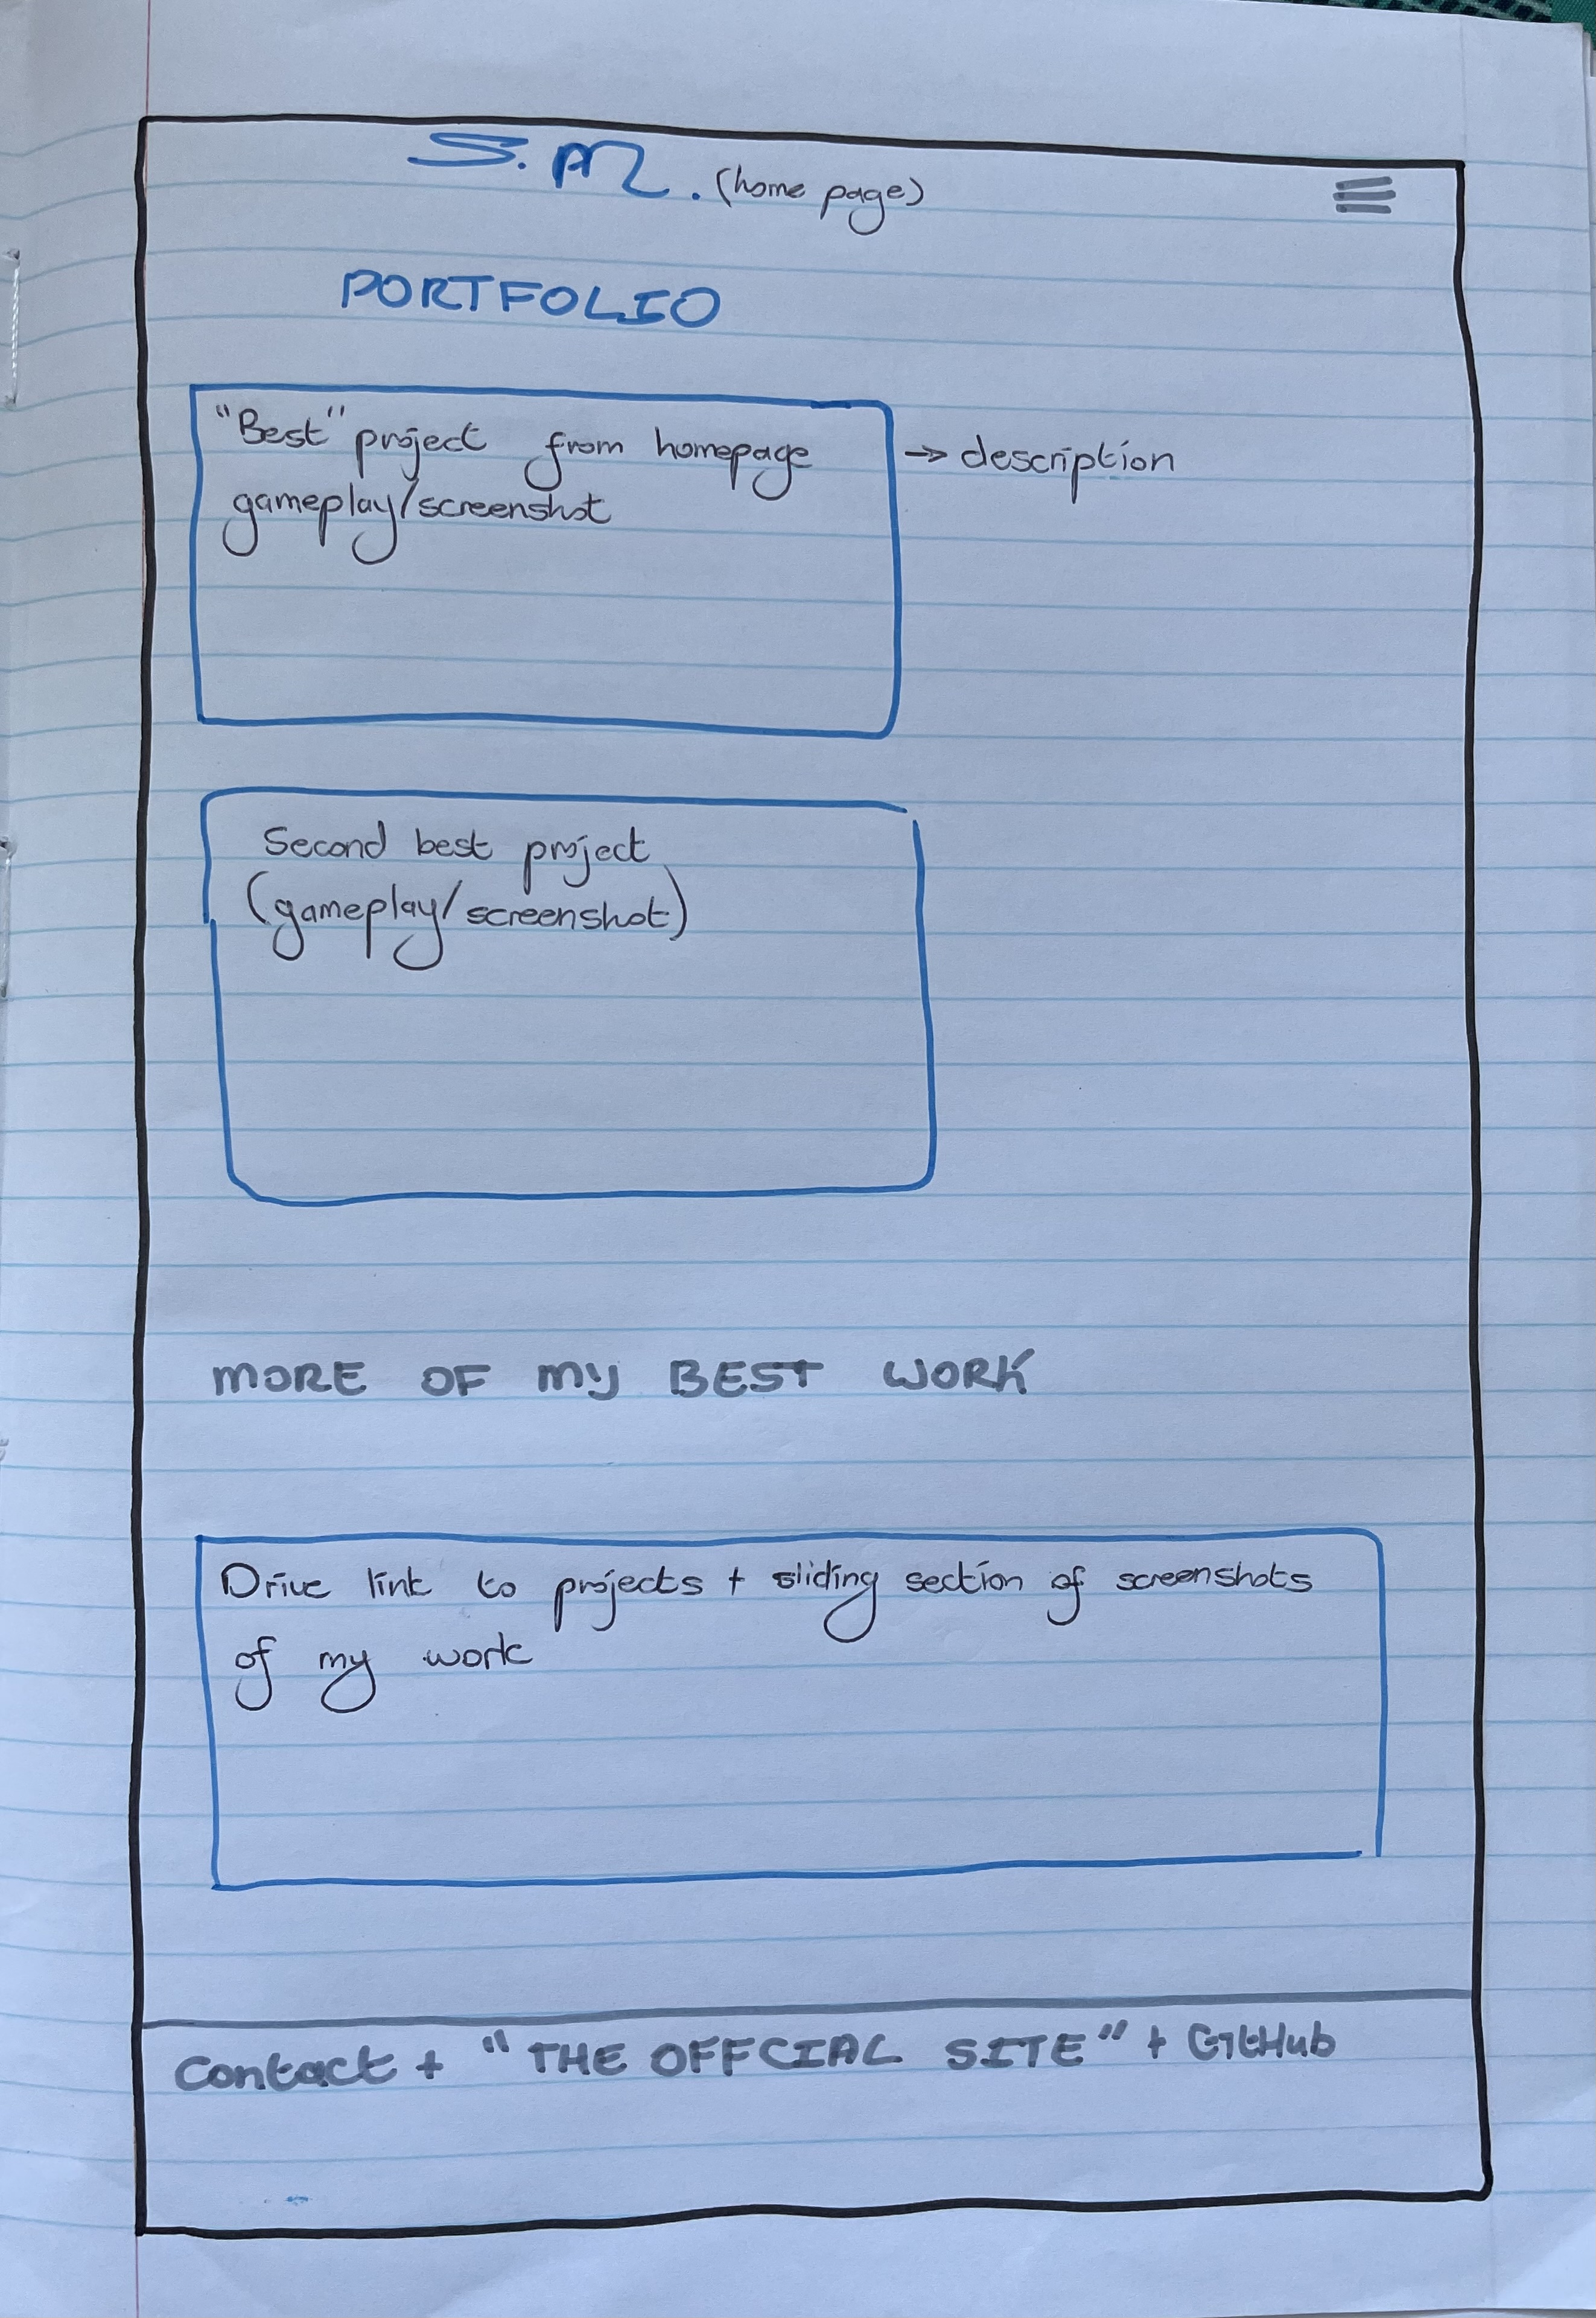 S. M. (home page)
PORTFOLIO
"Best" project from homepage → description
gameplay/screenshot
Second best project
(gameplay/screenshot)
MORE OF MY BEST WORK
Drive link to projects + sliding section of screenshots
of my work
Contact + "THE OFFCIAL SITE" + GitHub